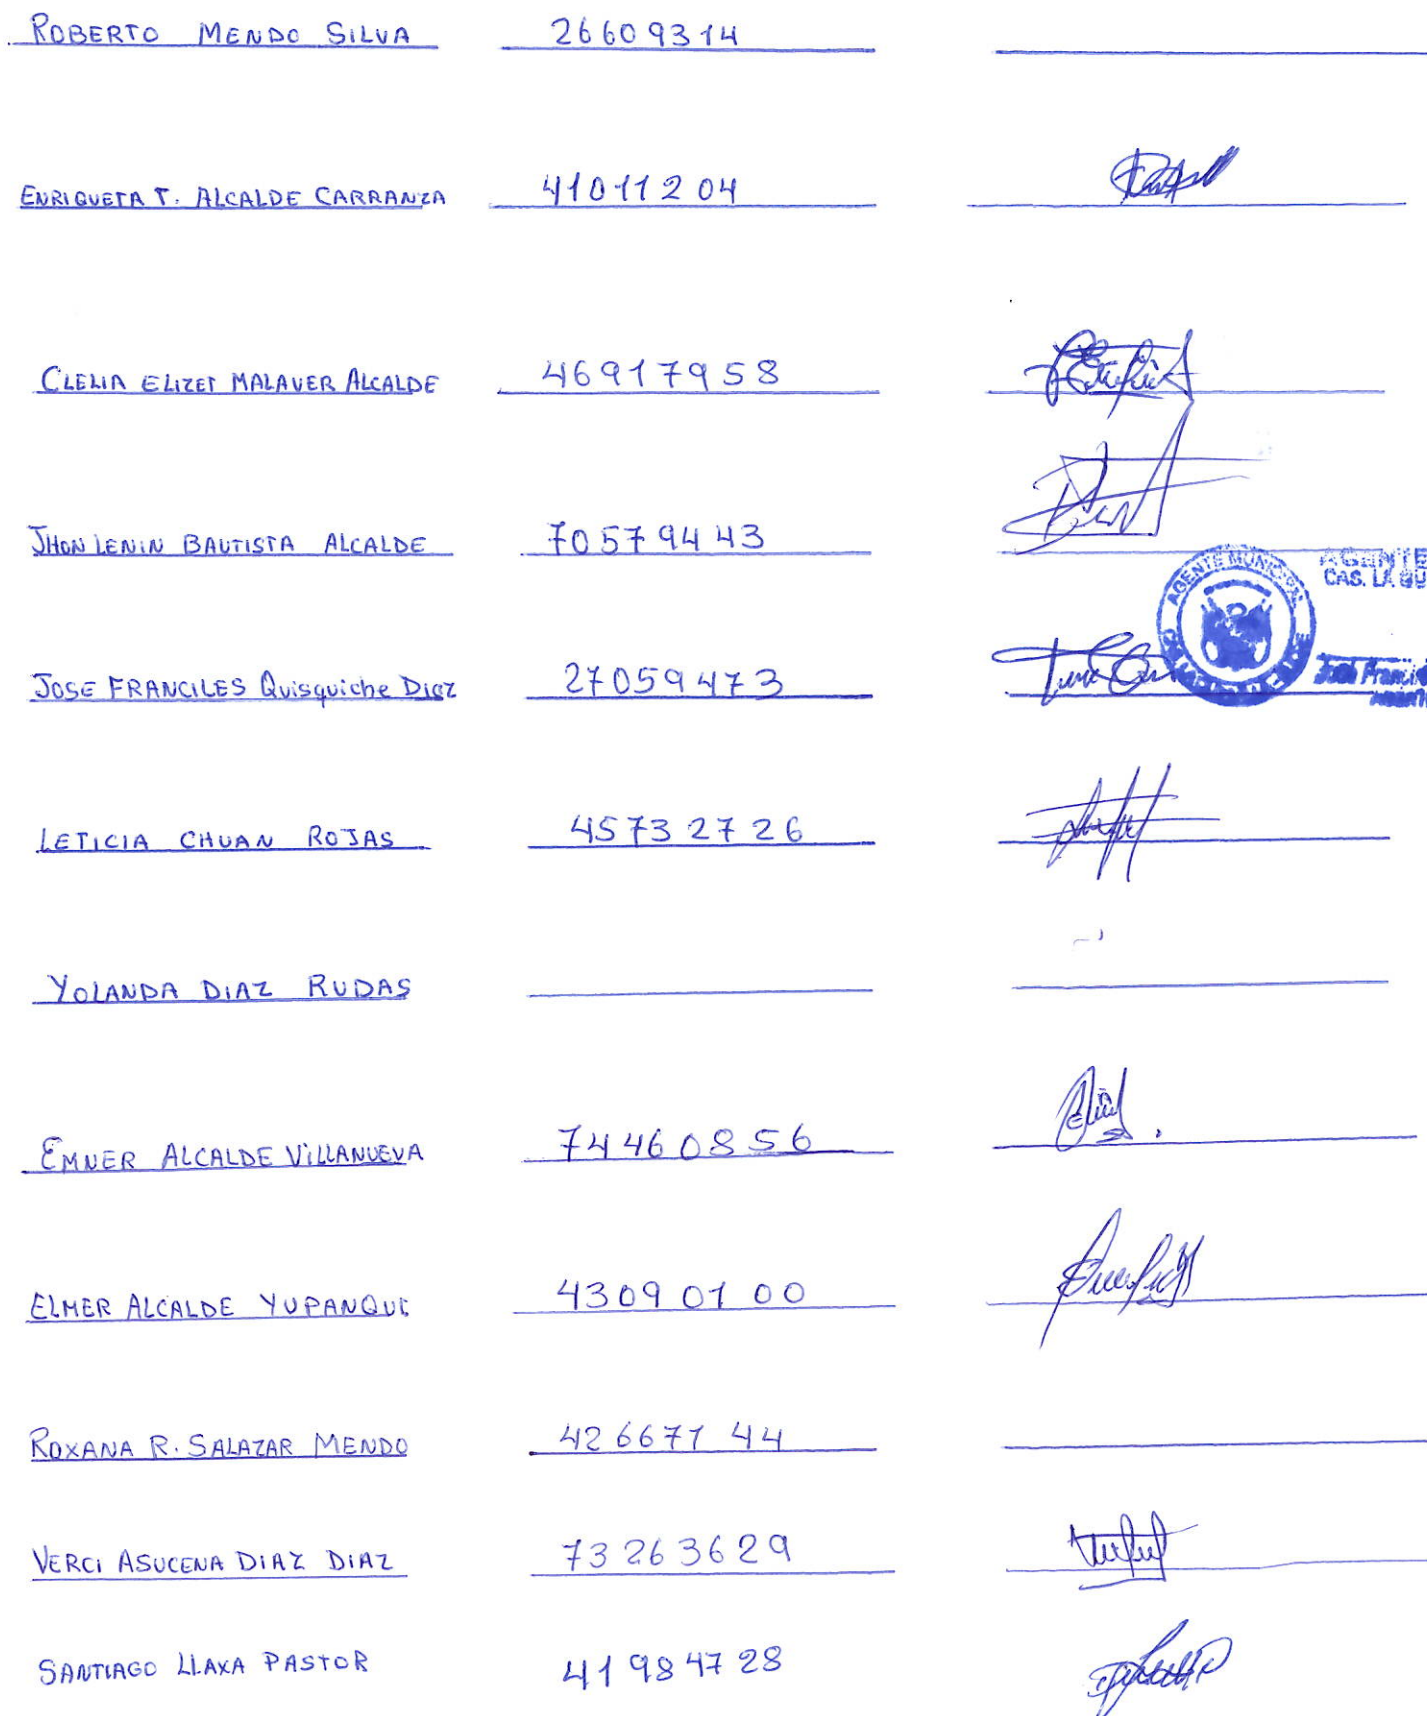 ROBERTO MENDO SILVA 26609314
ENRIQUETA T. ALCALDE CARRANZA 41011204
CLELIA ELIZET MALAVER ALCALDE 46917958
JHON LENIN BAUTISTA ALCALDE 70579443
AGENTE MUNICIPAL
CAS. LA
JOSE FRANCILES Quisquiche Diaz 27059473
LETICIA CHUAN ROJAS 45732726
YOLANDA DIAZ RUDAS
EMNER ALCALDE VILLANUEVA 74460856
ELMER ALCALDE YUPANQUI 43090100
ROXANA R. SALAZAR MENDO 42667144
VERCI ASUCENA DIAZ DIAZ 73263629
SANTIAGO LLAXA PASTOR 41984728